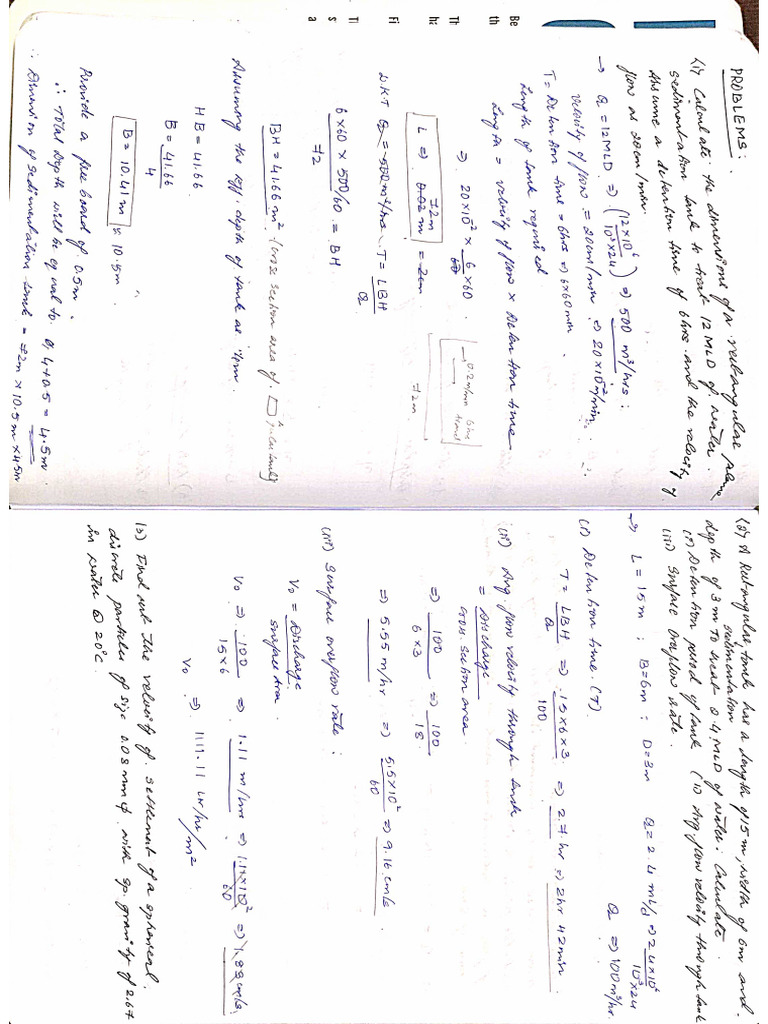 PROBLEMS:
(1) Calculate the dimensions of a rectangular
sedimentation tank to treat 12 MLD of water
Assume a detention time of 6hrs and the velocity of
flow as 20cm/min.
→ Q = 12MLD ⇒ (12×10⁶/10³×24) ⇒ 500 m³/hrs;
velocity of flow = 20cm/min ⇒ 20×10⁻²m/min;
T = Detention time = 6hrs ⇒ 6×60 min.
Length of tank required.
Length = velocity of flow × Detention time
⇒ 20×10⁻² × 6/60 ×60.
→ 0.2m/min 6hrs
L ⇒ 72m
72m
WKT Q = 500 m³/hrs T = LBH/Q
6×60×500/60 / 72 = BH
BH = 41.66 m² (cross section area of
Assuming the eff. depth of tank as 4m.
HB = 41.66
B = 41.66/4
B = 10.41 m ≈ 10.5m
Provide a free board of 0.5m.
∴ Total depth will be equal to 4+0.5 = 4.5m.
∴ Dimension of sedimentation tank = 72m × 10.5m × 4.5m
(2) A Rectangular tank has a length of 15m, width of 6m and
sedimentation
depth of 3m to treat 2.4MLD of water. Calculate
(i) Detention period of tank (ii) Avg. flow velocity through tank
(iii) Surface overflow rate.
→ L = 15m ; B = 6m ; D = 3m Q = 2.4 ML/d ⇒ 2.4×10⁶/10³×24
Q ⇒ 100m³/hr.
(i) Detention time. (T)
T = LBH/Q ⇒ 15×6×3/100 ⇒ 2.7 hr ⇒ 2hr 42min.
(ii) Avg. flow velocity through tank.
= Discharge/cross section area.
⇒ 100/6×3 ⇒ 100/18
⇒ 5.55 m/hr ⇒ 5.5×10²/60 ⇒ 9.16 cm/s
(iii) Surface overflow rate:
V₀ = Discharge/surface area.
V₀ ⇒ 100/15×6 ⇒ 1.11 m/hrs ⇒ 1.11×10²/60 ⇒ 1.83 cm/s
V₀ ⇒ 1111.11 ltr/hr/m²
(3) Find out the velocity of settlement of a spherical
discrete particles of size 0.03mm φ with sp. gravity of 2.67
in water @ 20°C.
Be
th
Th
ha
Fi
Ti
s
a